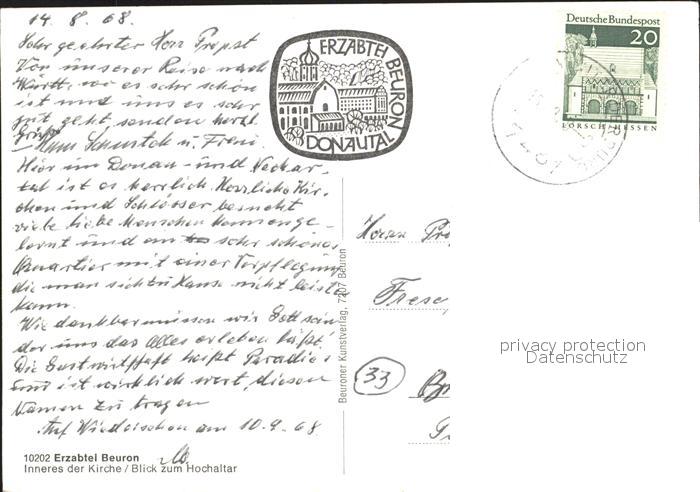 14. 8. 68.
Sehr geehrter Herr Propst
Von unserer Reise nach
Württ. wo es sehr schön
ist und uns es sehr
gut geht senden herzl.
Grüße
Hans u. Freni.
Hier im Donau- und Neckar-
tal ist es herrlich. Herrliche Kir-
chen und Schlösser besucht
viele liebe Menschen kennenge-
lernt und ein sehr schönes
Quartier mit einer Verpflegung
die man sich zu Hause nicht leisten
kann.
Wie dankbar müssen wir Gott sein
der uns das Alles erleben läßt.
Die Gastwirtschaft heißt Paradies
und ist wirklich wert, diesen
Namen zu tragen
Auf Wiedersehen am 10.9.68
10202 Erzabtei Beuron
Inneres der Kirche / Blick zum Hochaltar
Beuroner Kunstverlag, 7207 Beuron
ERZABTEI BEURON
DONAUTAL
Deutsche Bundespost
20
LORSCH/HESSEN
Herrn Pr
Frese
33
privacy protection
Datenschutz